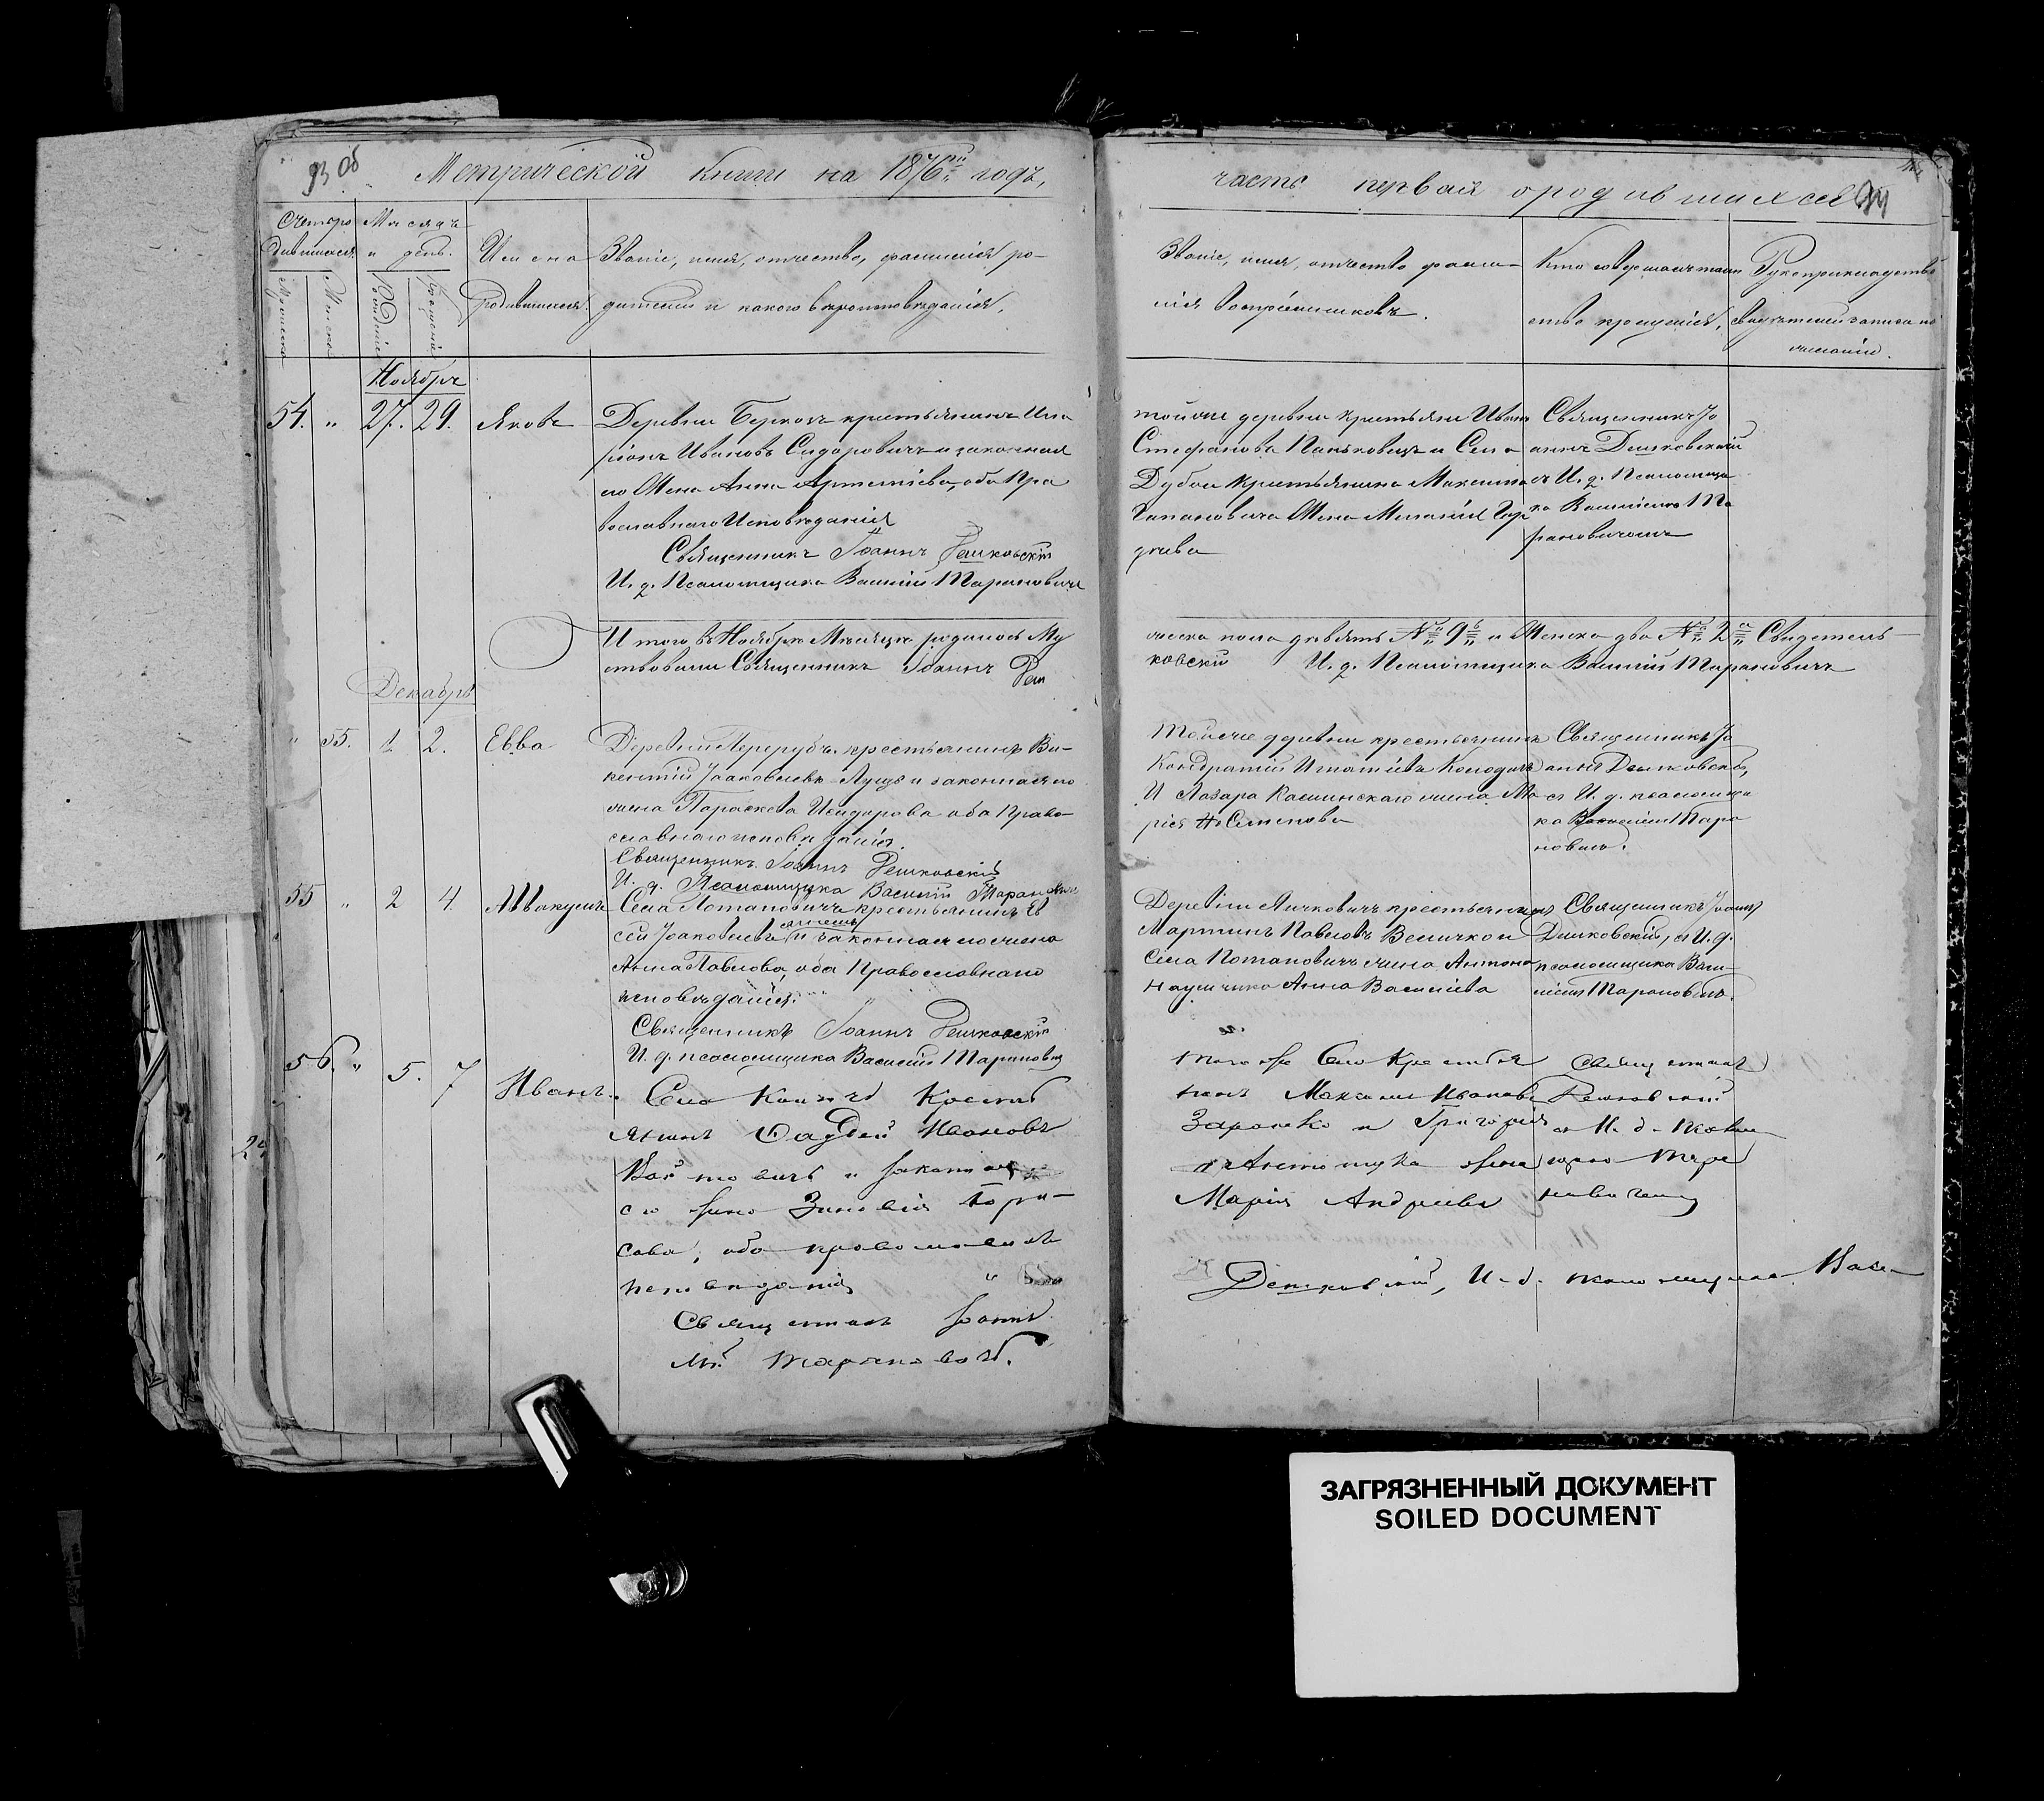 93 об
Метрической книги на 1876ый годъ,
часть первая о родившихся
94
Счетъ ро
дившихся
Мѣсяцъ
и день.
Имена
родившихся.
Званіе, имя, отчество, фамилія ро-
дителей и какого вѣроисповѣданія.
Мужеска
Женска
Рожденіе
Крещеніе
Званіе, имя, отчество фами-
лія воспріемниковъ.
Кто совершалъ таин
ство крещенія,
Рукоприкладство
свидѣтелей записи по
желанію.
Ноябрь
54. " 27. 29. Яковъ
Деревни крестьянинъ
Ивановъ Сидоровичъ и законная
его Жена Анна Артеміева, оба Пра
вославнаго Исповѣданія
Священникъ Іоаннъ Демковскій
И. д. Псаломщика Василій Тарановичъ
той же деревни крестьян Иванъ
Стефановъ и Села
Крестьянина Максима
Жена Меланія
Священникъ Іо
аннъ Демковскій
съ И. д. Псаломщи
ка Василіемъ Та
рановичемъ
Итого въ Ноябрѣ Мѣсяцѣ родилось Му
жеска пола девять № 9 и Женска два № 2 Свидетель
ствовали Священникъ Іоаннъ Дем
ковскій И. д. Псаломщика Василій Тарановичъ
Декабрь
" 55. 1 2. Евва
Деревни крестьянинъ Ви-
кентій Іаковлевъ и законная его
жена Параскева Исидорова оба Право-
славнаго исповѣданія.
Священникъ Іоаннъ Демковскій
И. д. Псаломщика Василій Тарановичъ
Той же деревни крестьянинъ
Кондратій Игнатіевъ
и Лазара Калинскаго жена Ма
рія Семенова
Священникъ Іо
аннъ Демковскій,
съ И. д. псаломщи
ка Василіемъ Тара
новичемъ.
55 " 2 4. Аввакумъ
Села Потаповичъ крестьянинъ Ев
сей Іаковлевъ и законная его жена
Анна Павлова, оба Православнаго
исповѣданія.
Священникъ Іоаннъ Демковскій
И. д. псаломщика Василій Тарановичъ
Деревни крестьянинъ
Мартинъ Павловъ Величко и
Села Потаповичъ жена Антона
Наумчика Анна Василіева
Священникъ Іоаннъ
Демковскій, съ И. д.
псаломщика Васи-
ліемъ Тарановичемъ.
56. " 5. 7 Иванъ.
Села Крестъ
янинъ Фаддей Ивановъ
и законная
его жена Зиновія Бори-
сова, оба православнаго
исповѣданія
Священникъ Іоаннъ
Демковскій, И. д. псаломщика Васи-
лій Тарановичъ.
того же Села Крестья
нинъ Максимъ Ивановъ
и Григорія
жена
Марія Андреева
Священникъ
Демковскій
съ И. д. Псалом
щика Тара
новичемъ
ЗАГРЯЗНЕННЫЙ ДОКУМЕНТ
SOILED DOCUMENT